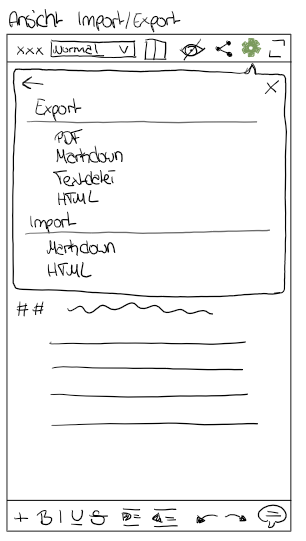 Ansicht Import/Export
xxx Normal V
Export
PDF
Markdown
Textdatei
HTML
Import
Markdown
HTML
##
+ B I U S